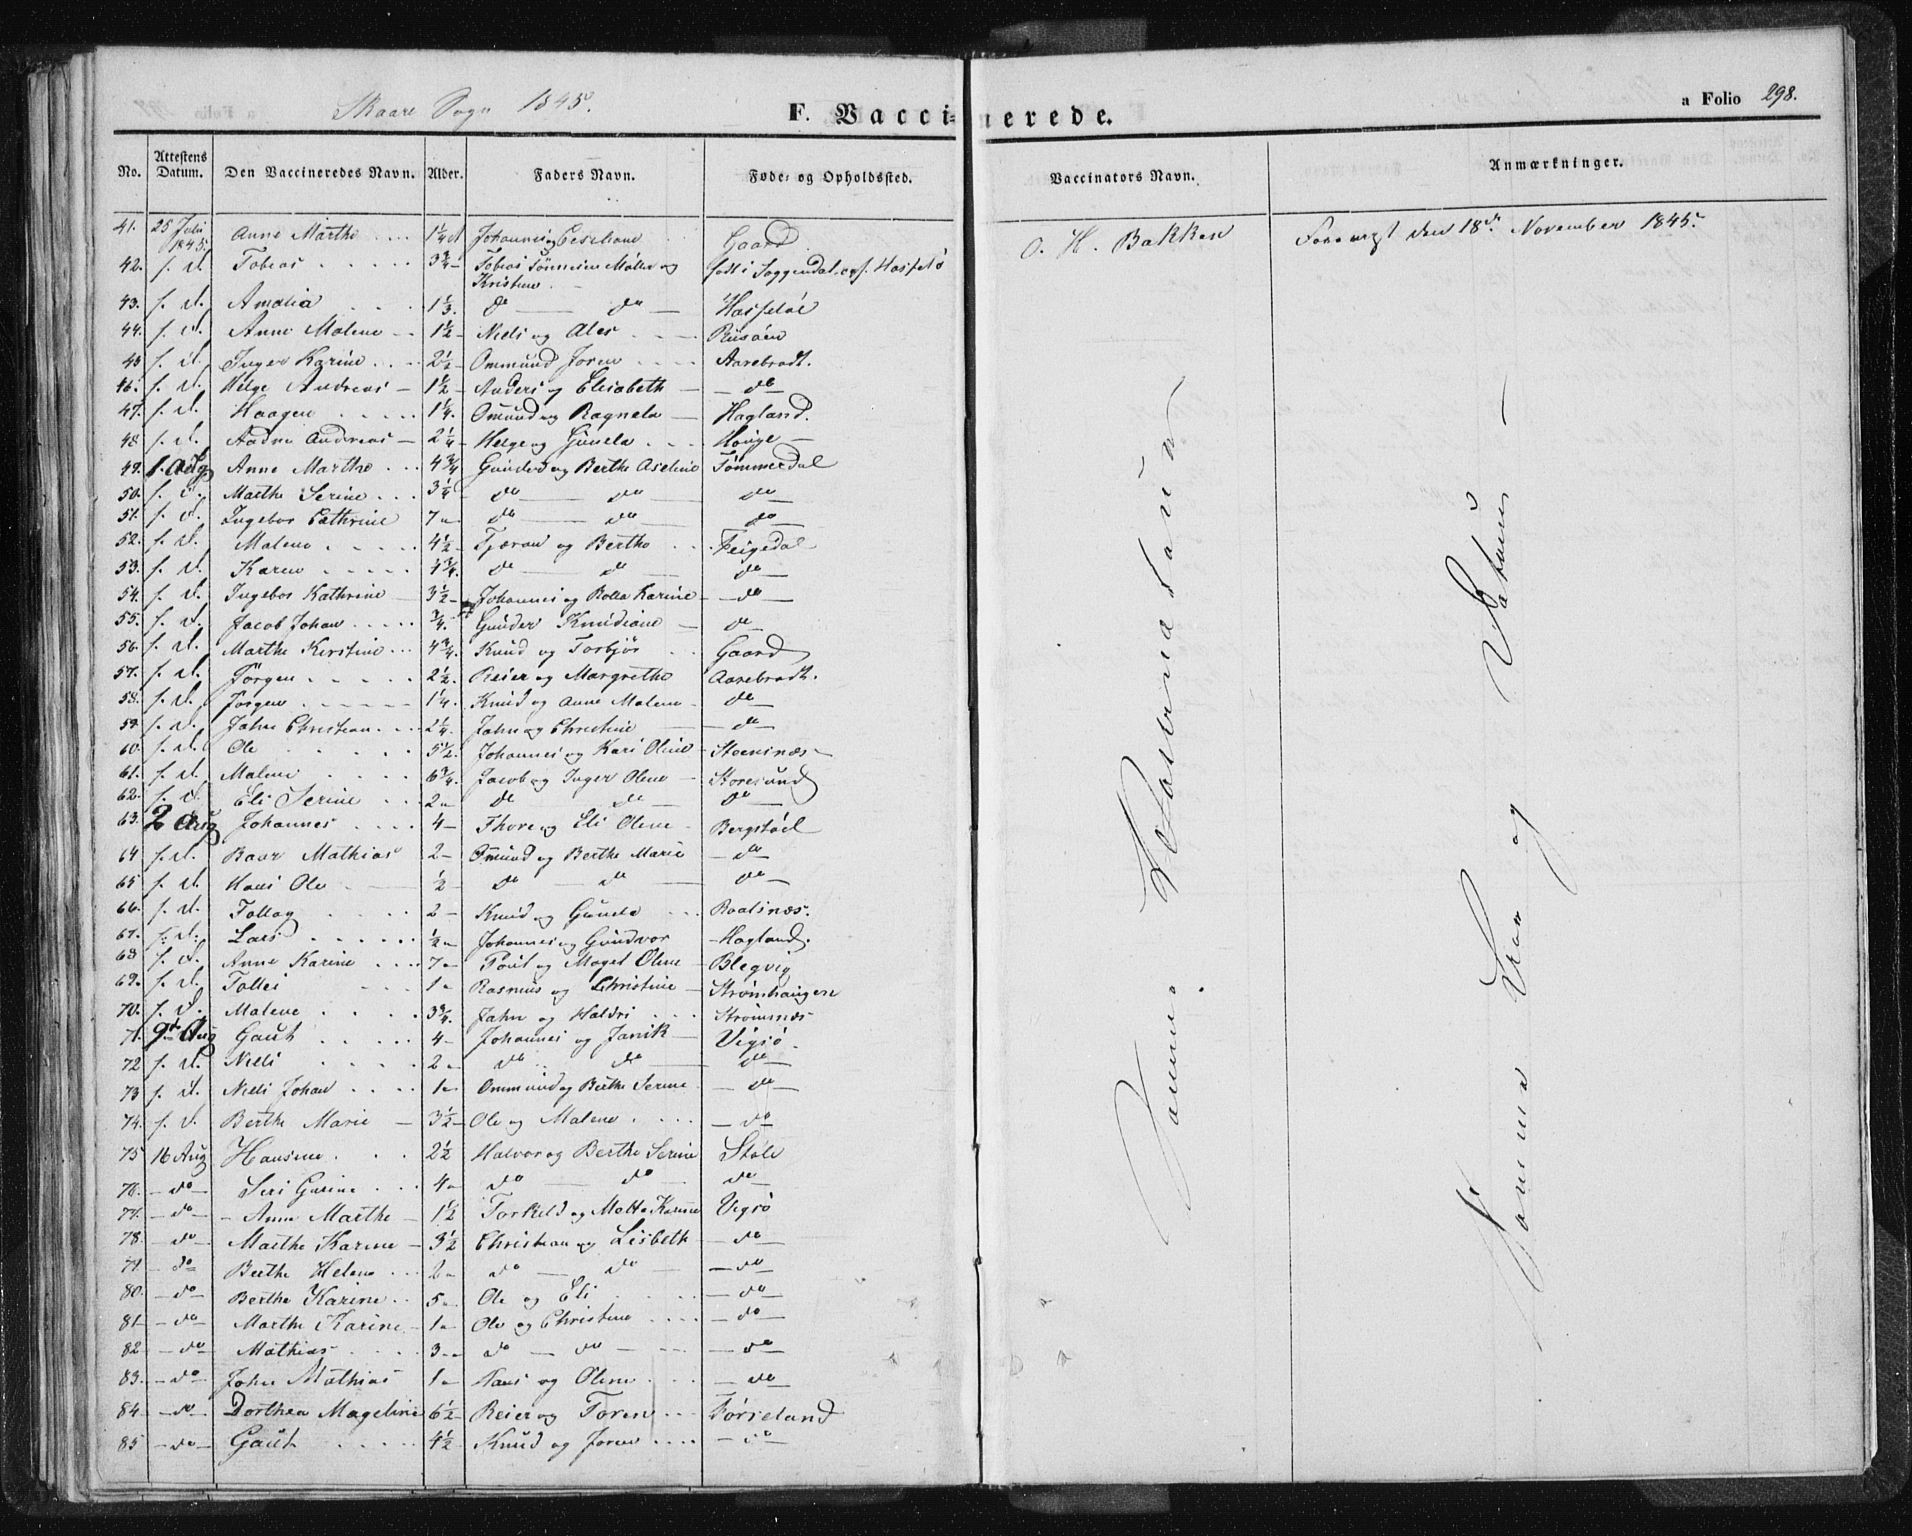 Skaare Sogn 1845.
F. Vaccinerede.
a Folio 298.
No. Attestens Datum. Den Vaccineredes Navn. Alder. Faders Navn. Føde- og Opholdssted. Vaccinators Navn. Anmærkninger.
41. 25 Juli 1845. Anne Marthe 1 1/4 Johannes og Gaard O. H. Bakken den 18de November 1845.
42. f. d. Tobias 3 3/4 Tobias Tønnesen Møller og Kristine født i Soggendal,
43. f. d. Amalia 1 1/3. do do Hasseløe
44. f. d. Anne Malene 1 1/2 Niels og Ales
45 f. d. Inger Karine 2 1/2 Ommund Joren Aarebrodt.
46. f. d. Helge Andreas 1 1/2 Anders og Elisabeth do
47. f. d. Haagen 1 1/4. Omund og Ragnela Hagland.
48. f. d. Aadne Andreas 2 1/4 Helge og Gunela Houge
49. 1. Aug Anne Marthe 4 3/4 Gunder og Berthe Aseline Tømmerdal
50. f. d. Marthe Serine 3 1/4 do do do
51. f. d. Ingebor Cathrine 7 do do do
52. f. d. Malene 4 1/2 Tjæran og Berthe Feigedal
53. f. d. Karen 4 3/4. do do do
54. f. d. Ingebor Kathrine 3 1/2 Johannes og Karine do
55. f. d. Jacob Johan 3/4. Gunder Knudiane do
56. f. d. Marthe Kirstine 4 3/4. Knud og Torbjør Gaard
57. f. d. Jørgen 2 1/2. Reier og Margrethe Aarebrodt.
58. f. d. Jørgen 1 1/4. Knud og Anne Malene do
59. f. d. John Christian 2 1/4. John og Christine do
60. f. d. Ole 5 1/2. Johannes og Kari Oline Steensnæs
61. f. d. Malene 6 3/4. Jacob og Inger Olene Storesund
62. f. d. Eli Serine 2 do do do
63. 2 Aug Johannes 4 Thore og Eli Olene Bergstøel
64 f. d. Baar Mathias 2 Omund og Berthe Marie do
65 f. d. Hans Ole 1/2 do do do
66. f. d. Tollag 2 Knud og Gunela
67. f. d. Lars 1/2 Johannes og Gundvor Hagland.
68 f. d. Anne Karine 7 Poul og Maget Olene Blegvig
69. f. d. Tollei 1 Rasmus og Christine Strømhaugen
70. f. d. Malene 3 3/4. John og Haldri Strømnæs
71. 9de Aug Gaut 4 Johannes og Janik Vigsø.
72 f. d. Niels 2 do do do
73 f. d. Niels Johan 1 Ommund og Berthe Serine do
74. f. d. Berthe Marie 3 1/2 Ole og Malene do
75 16 Aug Hansine 2 1/2 Halvor og Berthe Serine Støle
76. do Seri Gurine 4 do do do
77. do Anne Marthe 1 1/2 Torkild og Mette Karine Vigsø
78. do Marthe Karine 3 1/2 Christian og Lisbeth do
79. do Berthe Helene 2 do do do
80. do Berthe Karine 5 Ole og Eli do
81 do Marthe Karine 1 Ole og Christine do
82 do Mathias 3 do do do
83. do John Mathias 1 Hans og Olene do
84 do Dorthea Mageline 6 1/2 Reier og Toren Førreland
85 do Gaut 4 1/2 Knud og Joren do
Samme